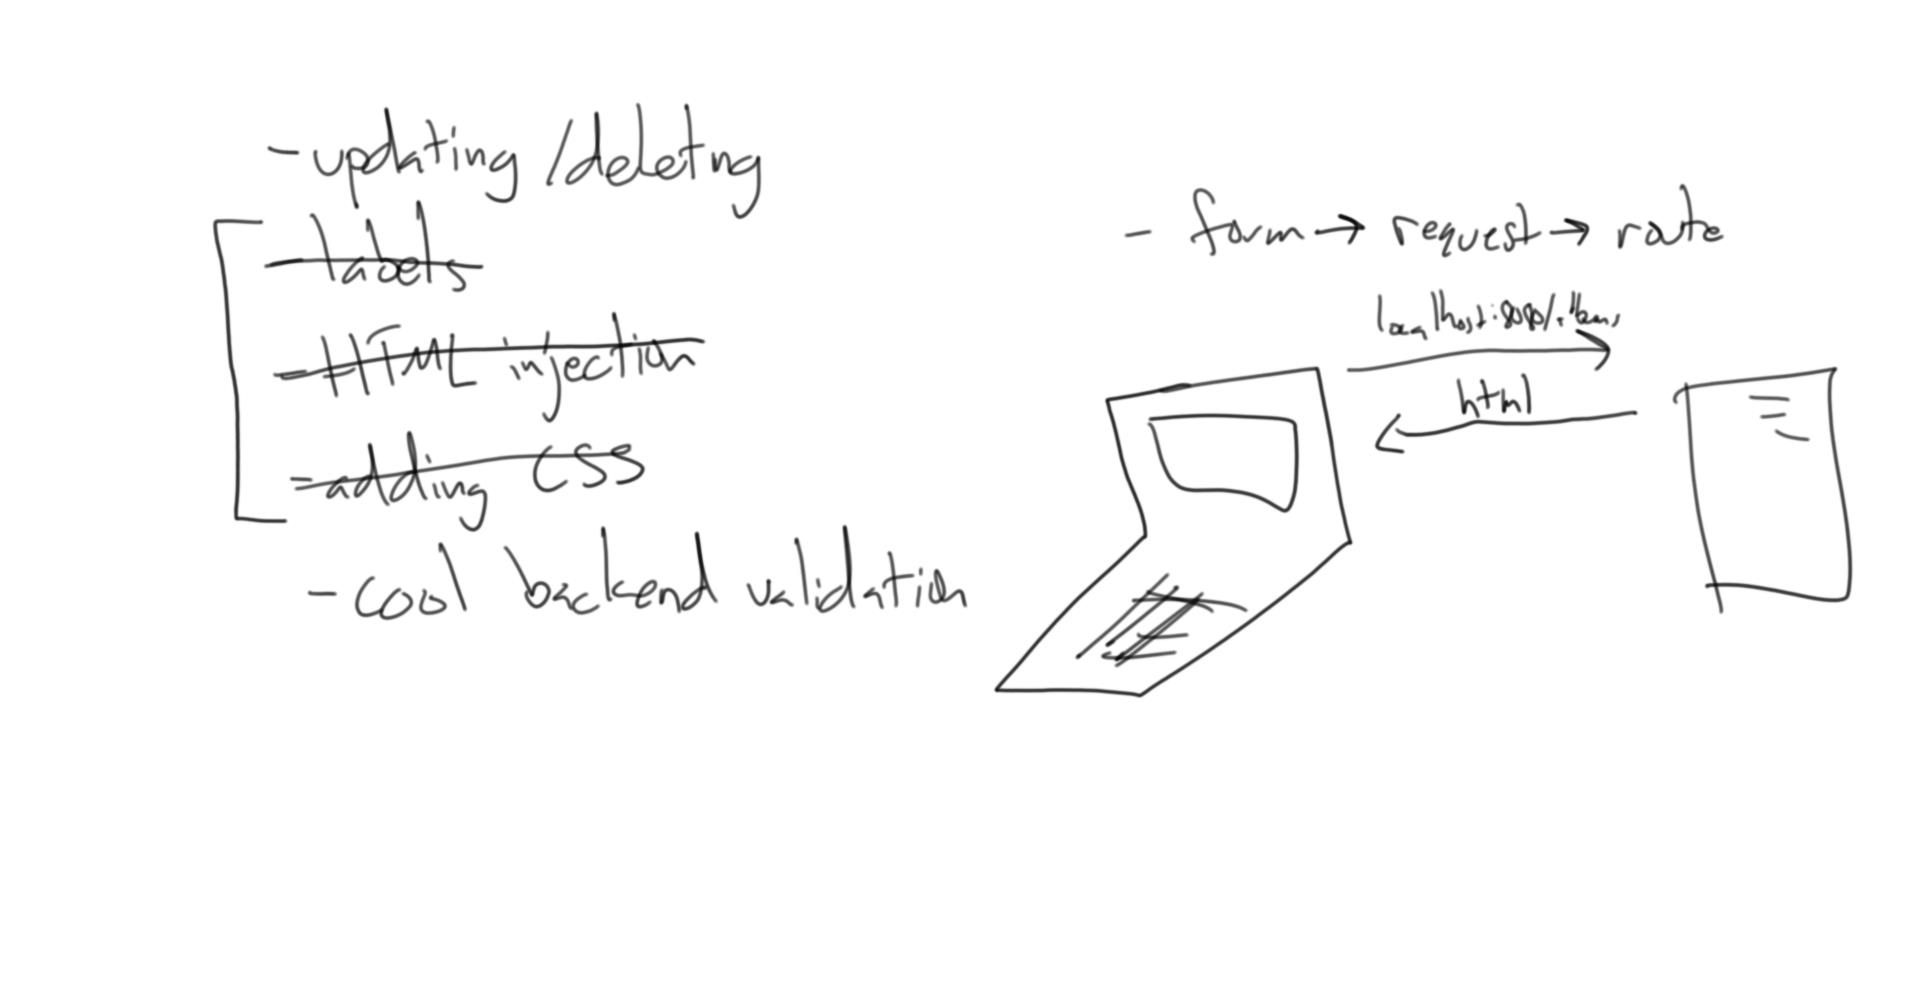 - updating /deleting
- labels
- HTML injection
- adding CSS
- cool backend validation
- form → request → route
html